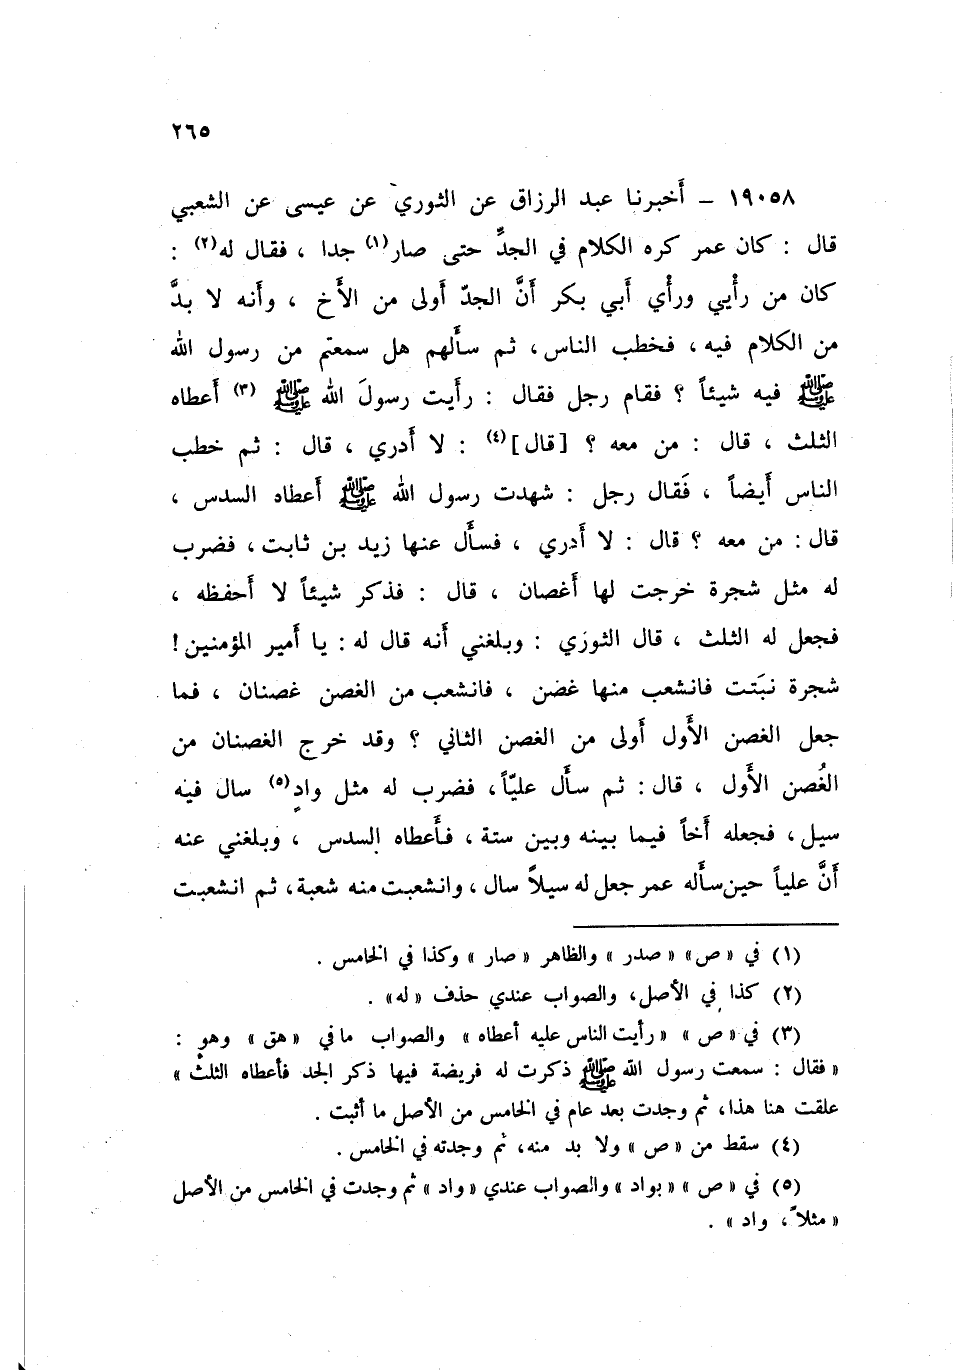 ٢٦٥
١٩٠٥٨ – أَخبرنا عبد الرزاق عن الثوري عن عيسى عن الشعبي
قال : كان عمر كره الكلام في الجدِّ حتى صار(١) جدا ، فقال له(٢) :
كان من رأْيي ورأْي أَبي بكر أَنَّ الجدّ أَولى من الأَخ ، وأَنه لا بدَّ
من الكلام فيه ، فخطب الناس ، ثم سأَلهم هل سمعتم من رسول الله
ﷺ فيه شيئاً ؟ فقام رجل فقال : رأَيت رسولَ الله ﷺ (٣) أَعطاه
الثلث ، قال : من معه ؟ [قال](٤) : لا أَدري ، قال : ثم خطب
الناس أَيضاً ، فَقال رجل : شهدت رسول الله ﷺ أَعطاه السدس ،
قال : من معه ؟ قال : لا أَدري ، فسأَل عنها زيد بن ثابت ، فضرب
له مثل شجرة خرجت لها أَغصان ، قال : فذكر شيئاً لا أَحفظه ،
فجعل له الثلث ، قال الثوري : وبلغني أَنه قال له : يا أَمير المؤمنين !
شجرة نبَتت فانشعب منها غصن ، فانشعب من الغصن غصنان ، فما
جعل الغصن الأَول أَولى من الغصن الثاني ؟ وقد خرج الغصنان من
الغُصن الأَول ، قال : ثم سأَل عليّاً ، فضرب له مثل وادٍ(٥) سال فيه
سيل ، فجعله أَخاً فيما بينه وبين ستة ، فأَعطاه السدس ، وبلغني عنه
أَنَّ علياً حين سأَله عمر جعل له سيلاً سال ، وانشعبت منه شعبة ، ثم انشعبت
(١) في « ص » « صدر » والظاهر « صار » وكذا في الخامس .
(٢) كذا في الأصل، والصواب عندي حذف « له » .
(٣) في « ص » « رأيت الناس عليه أعطاه » والصواب ما في « هق » وهو :
« فقال : سمعت رسول الله ﷺ ذكرت له فريضة فيها ذكر الجد فأعطاه الثلث »
علقت هنا هذا، ثم وجدت بعد عام في الخامس من الأصل ما أثبت .
(٤) سقط من « ص » ولا بد منه، ثم وجدته في الخامس .
(٥) في « ص » « بواد » والصواب عندي « واد » ثم وجدت في الخامس من الأصل
« مثلاً، واد » .